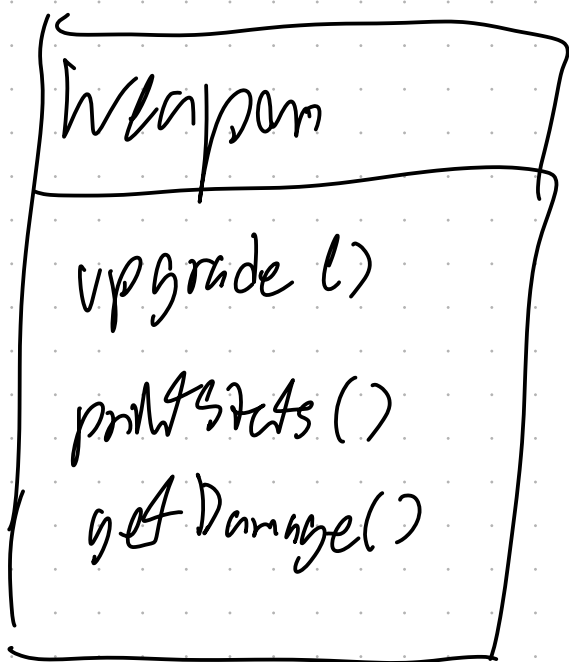 Weapon
upgrade ()
printStats ()
getDamage()